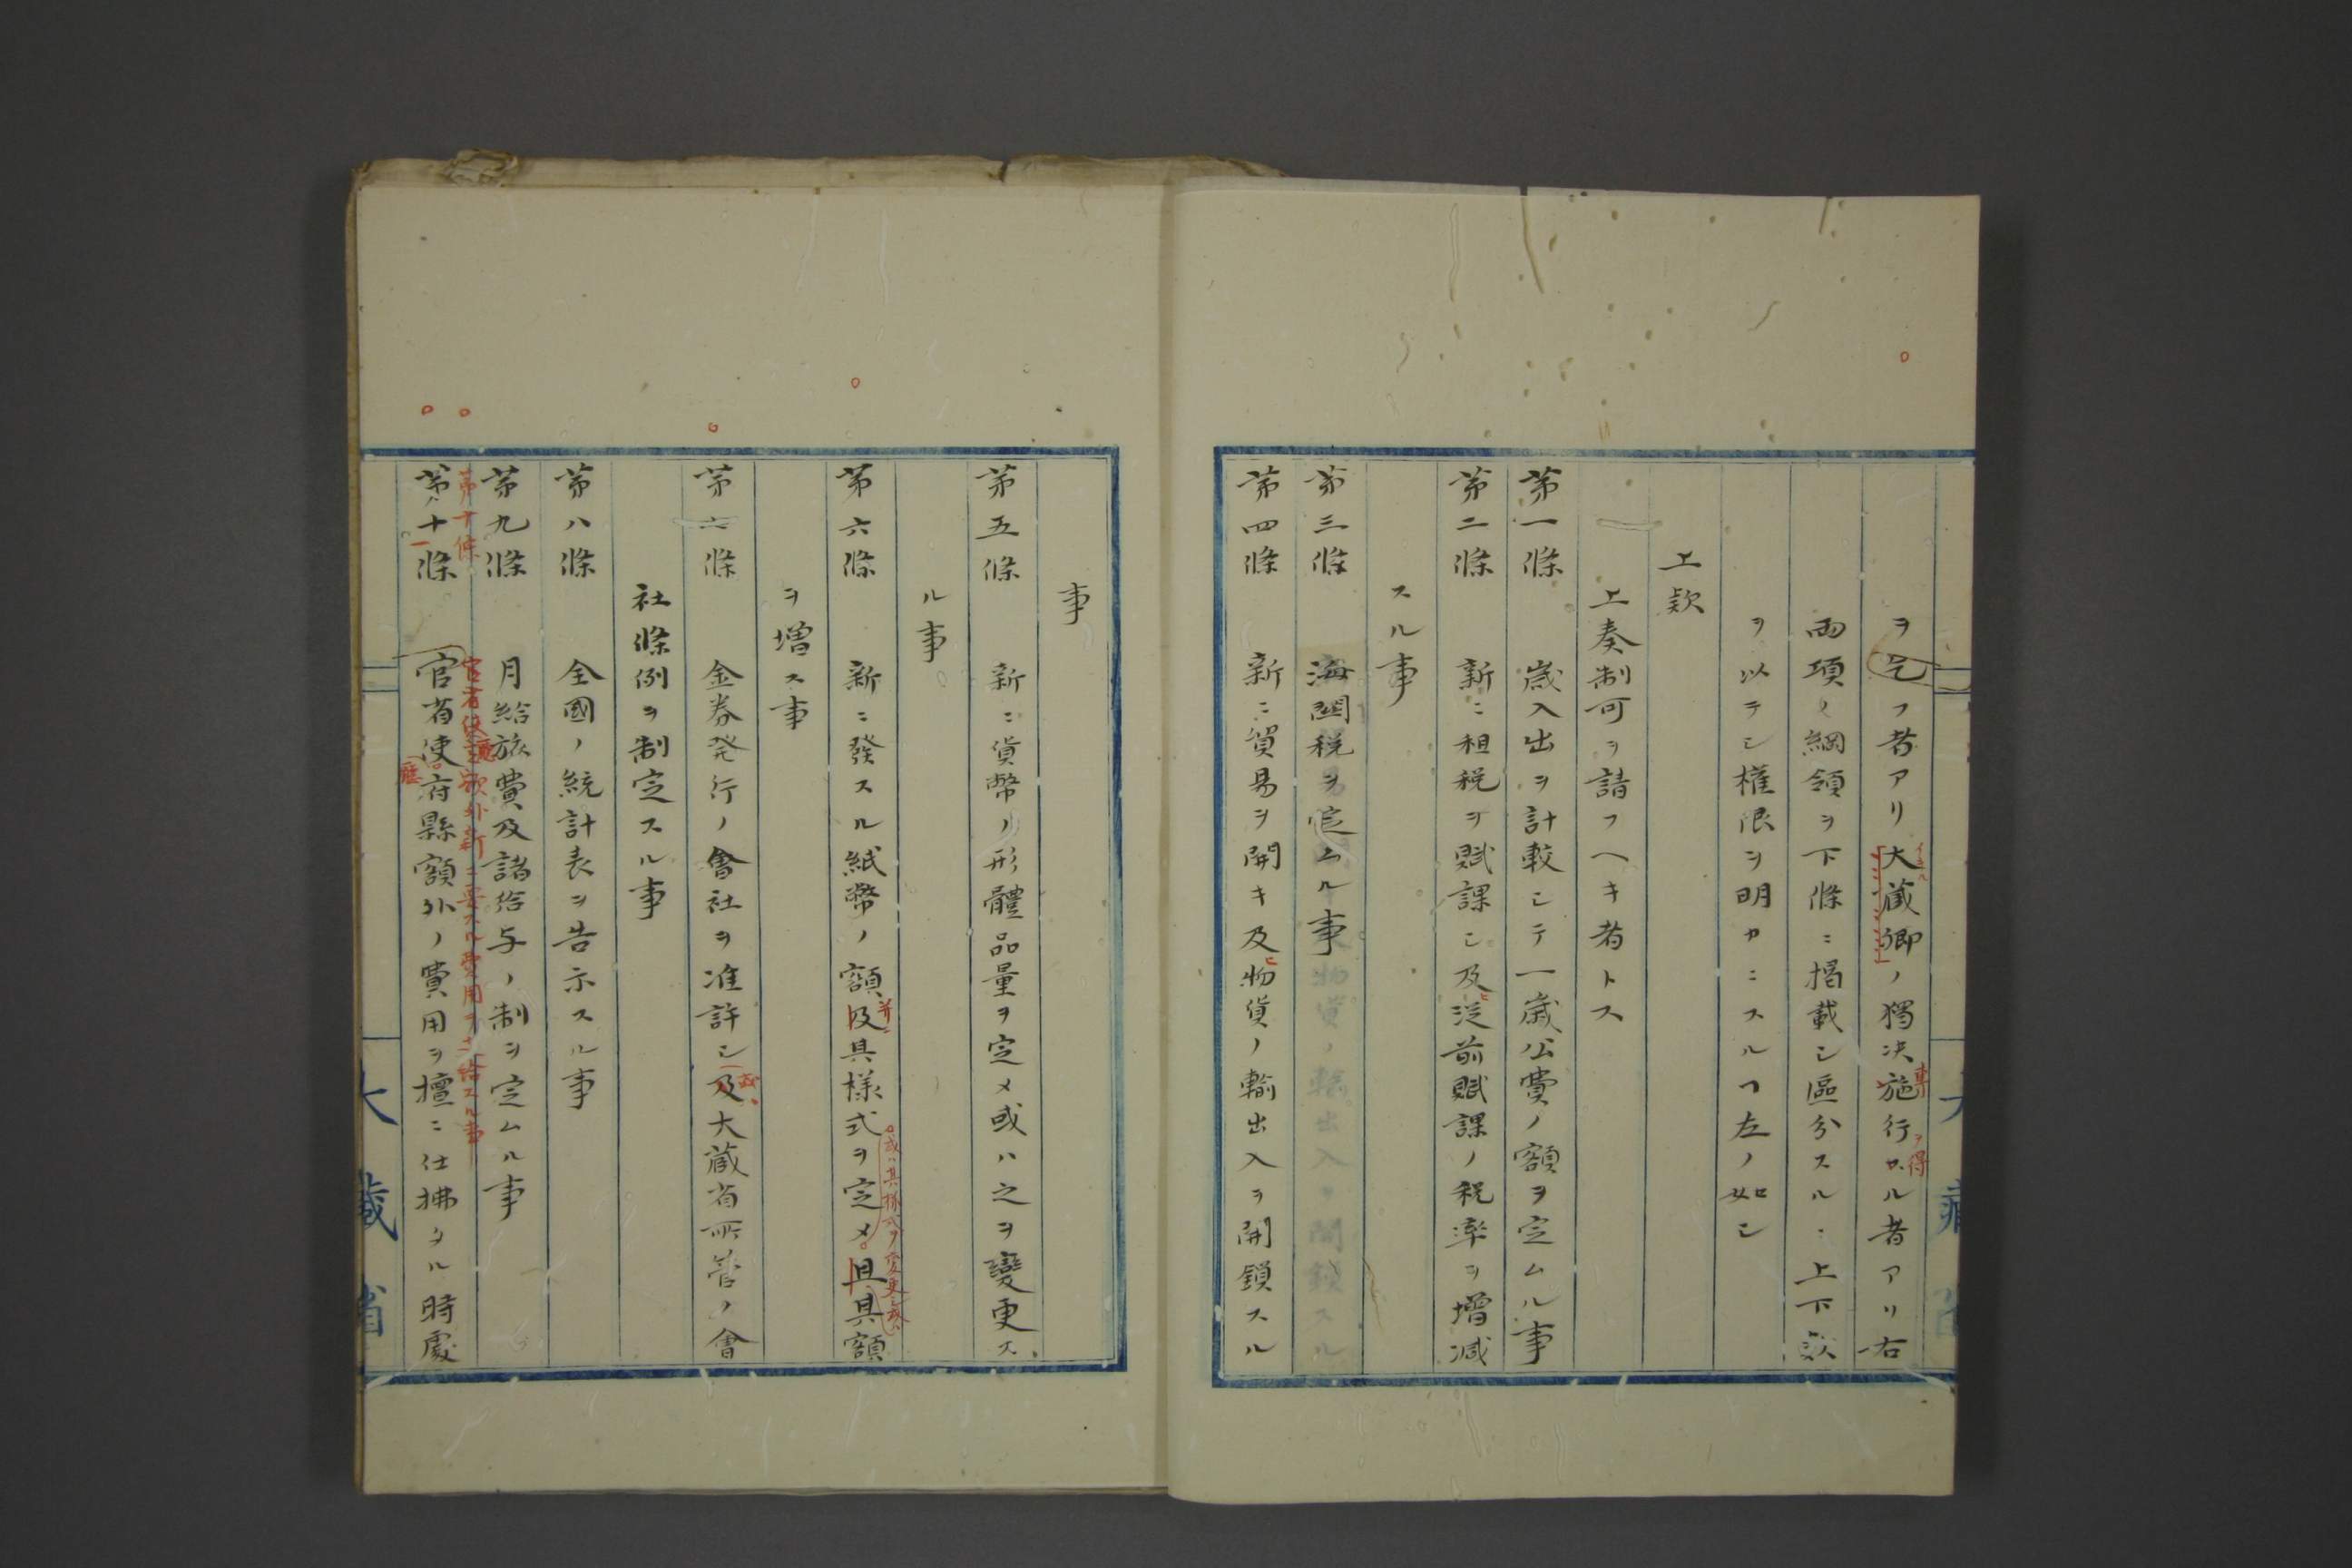 ヲ乞フ者アリ大蔵卿ノ獨決施行スル者アリ右
イキル
専
ヲ得
兩項ノ綱領ヲ下條ニ掲載シ區分スルニ上下款
ヲ以テシ權限ヲ明カニスルヿ左ノ如シ
上款
上奏制可ヲ請フヘキ者トス
第一條 歳入出ヲ計較シテ一歳公費ノ額ヲ定ムル事
第二條 新ニ租税ヲ賦課シ及ヒ従前賦課ノ税率ヲ増減
スル事
第三條 海關税ヲ定ムル事
第四條 新ニ貿易ヲ開キ及ヒ物貨ノ輸出入ヲ開鎖スル
大藏省
事
第五條 新ニ貨幣ノ形體品量ヲ定メ或ハ之ヲ變更ス
ル事
第六條 新ニ發スル紙幣ノ額及具様式ヲ定メ且具額
并ニ
或ハ其様式ヲ変更シ或ハ
ヲ増ス事
第 條 金券発行ノ會社ヲ准許シ及大蔵省所管ノ會
或ハ
社條例ヲ制定スル事
第八條 全國ノ統計表ヲ告示スル事
第九條 月給旅費及諸給与ノ制ヲ定ムル事
第十條 官省使 額外新ニ要スル費用ヲ支給スル事
第十一條 官省使府縣額外ノ費用ヲ擅ニ仕拂タル時處
廳
大藏省